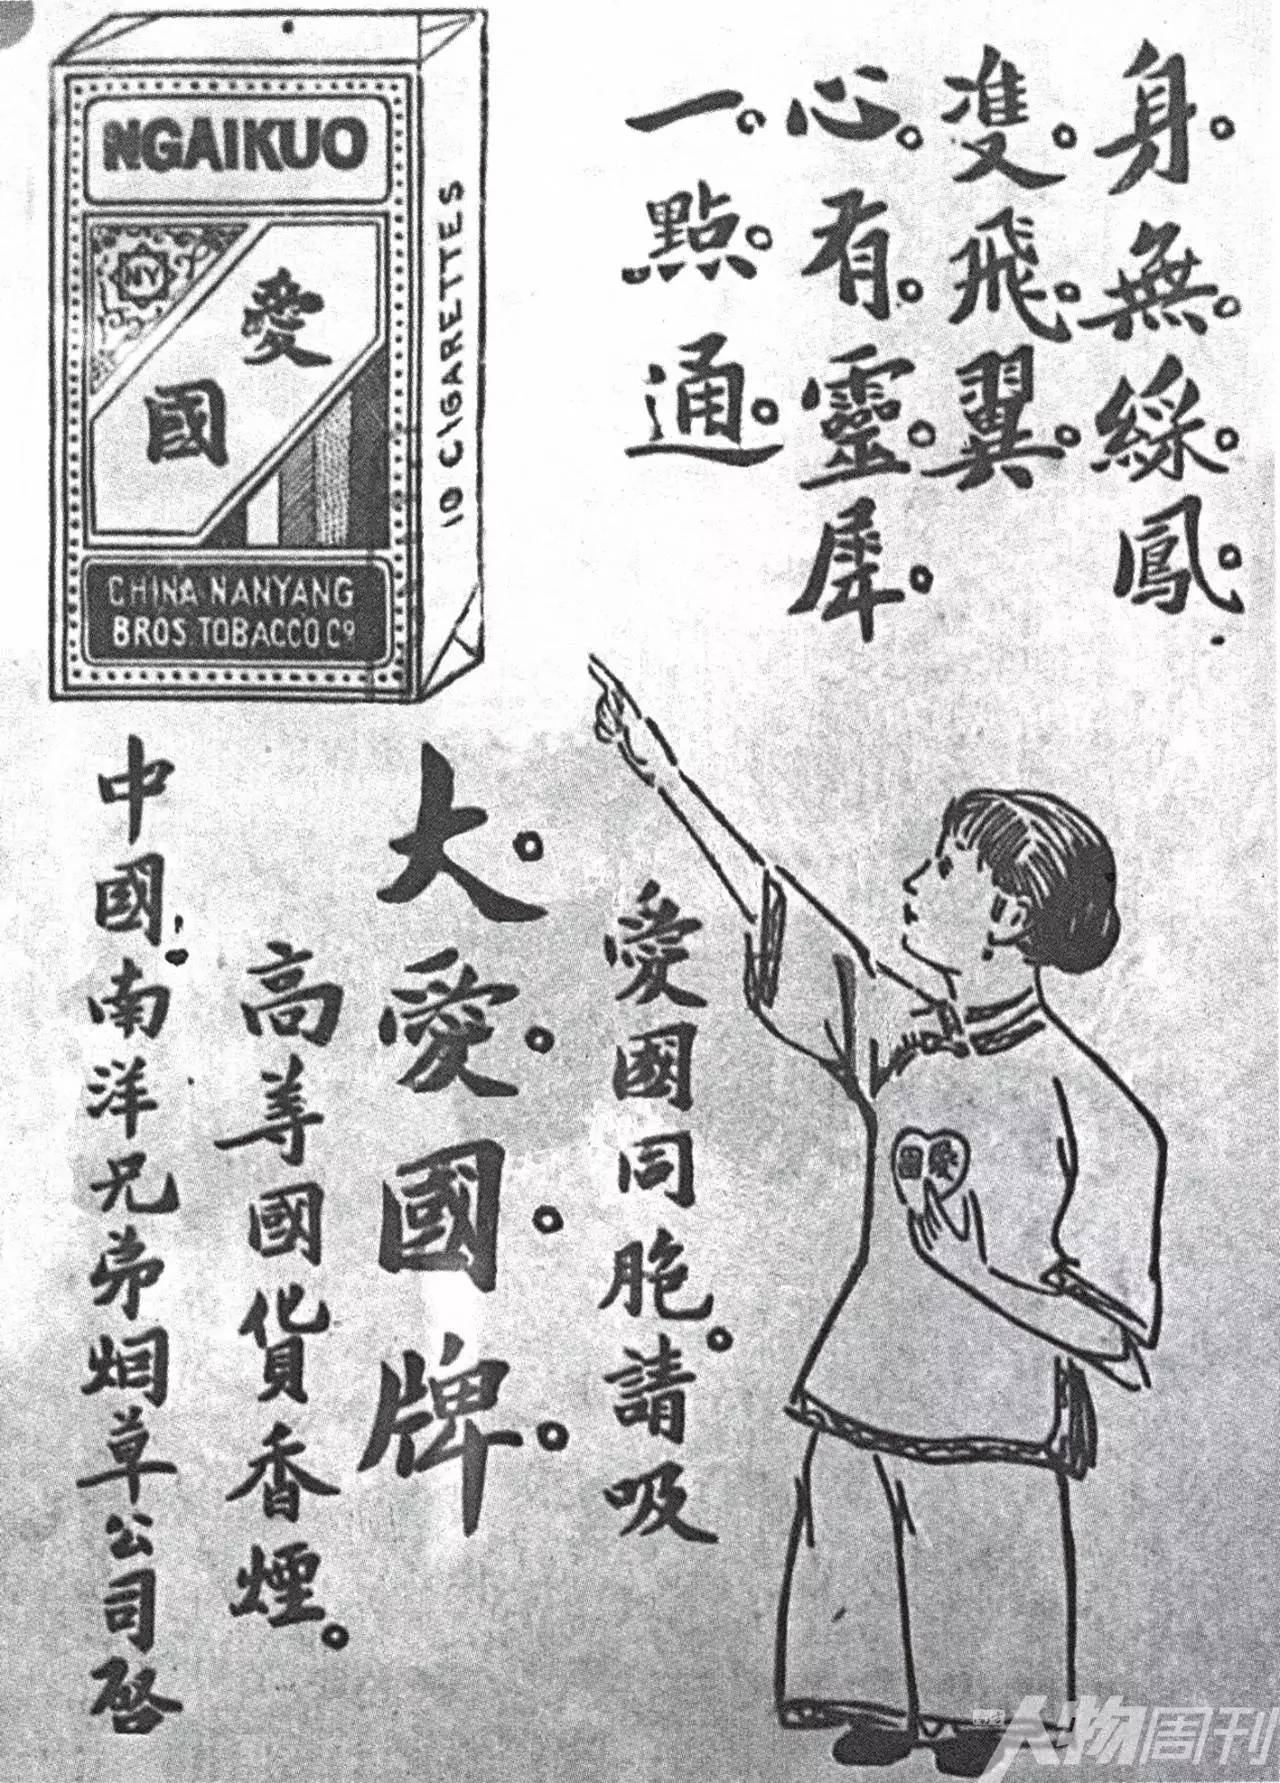 身。無。綵。鳳。
雙。飛。翼。
心。有。靈。犀。
一。點。通。
NGAIKUO
NY
愛
國
10 CIGARETTES
CHINA NANYANG
BROS. TOBACCO. Co
愛國同胞。請吸
大。愛。國。牌。
高等國貨香煙。
中國南洋兄弟烟草公司啓
愛國
人物周刊